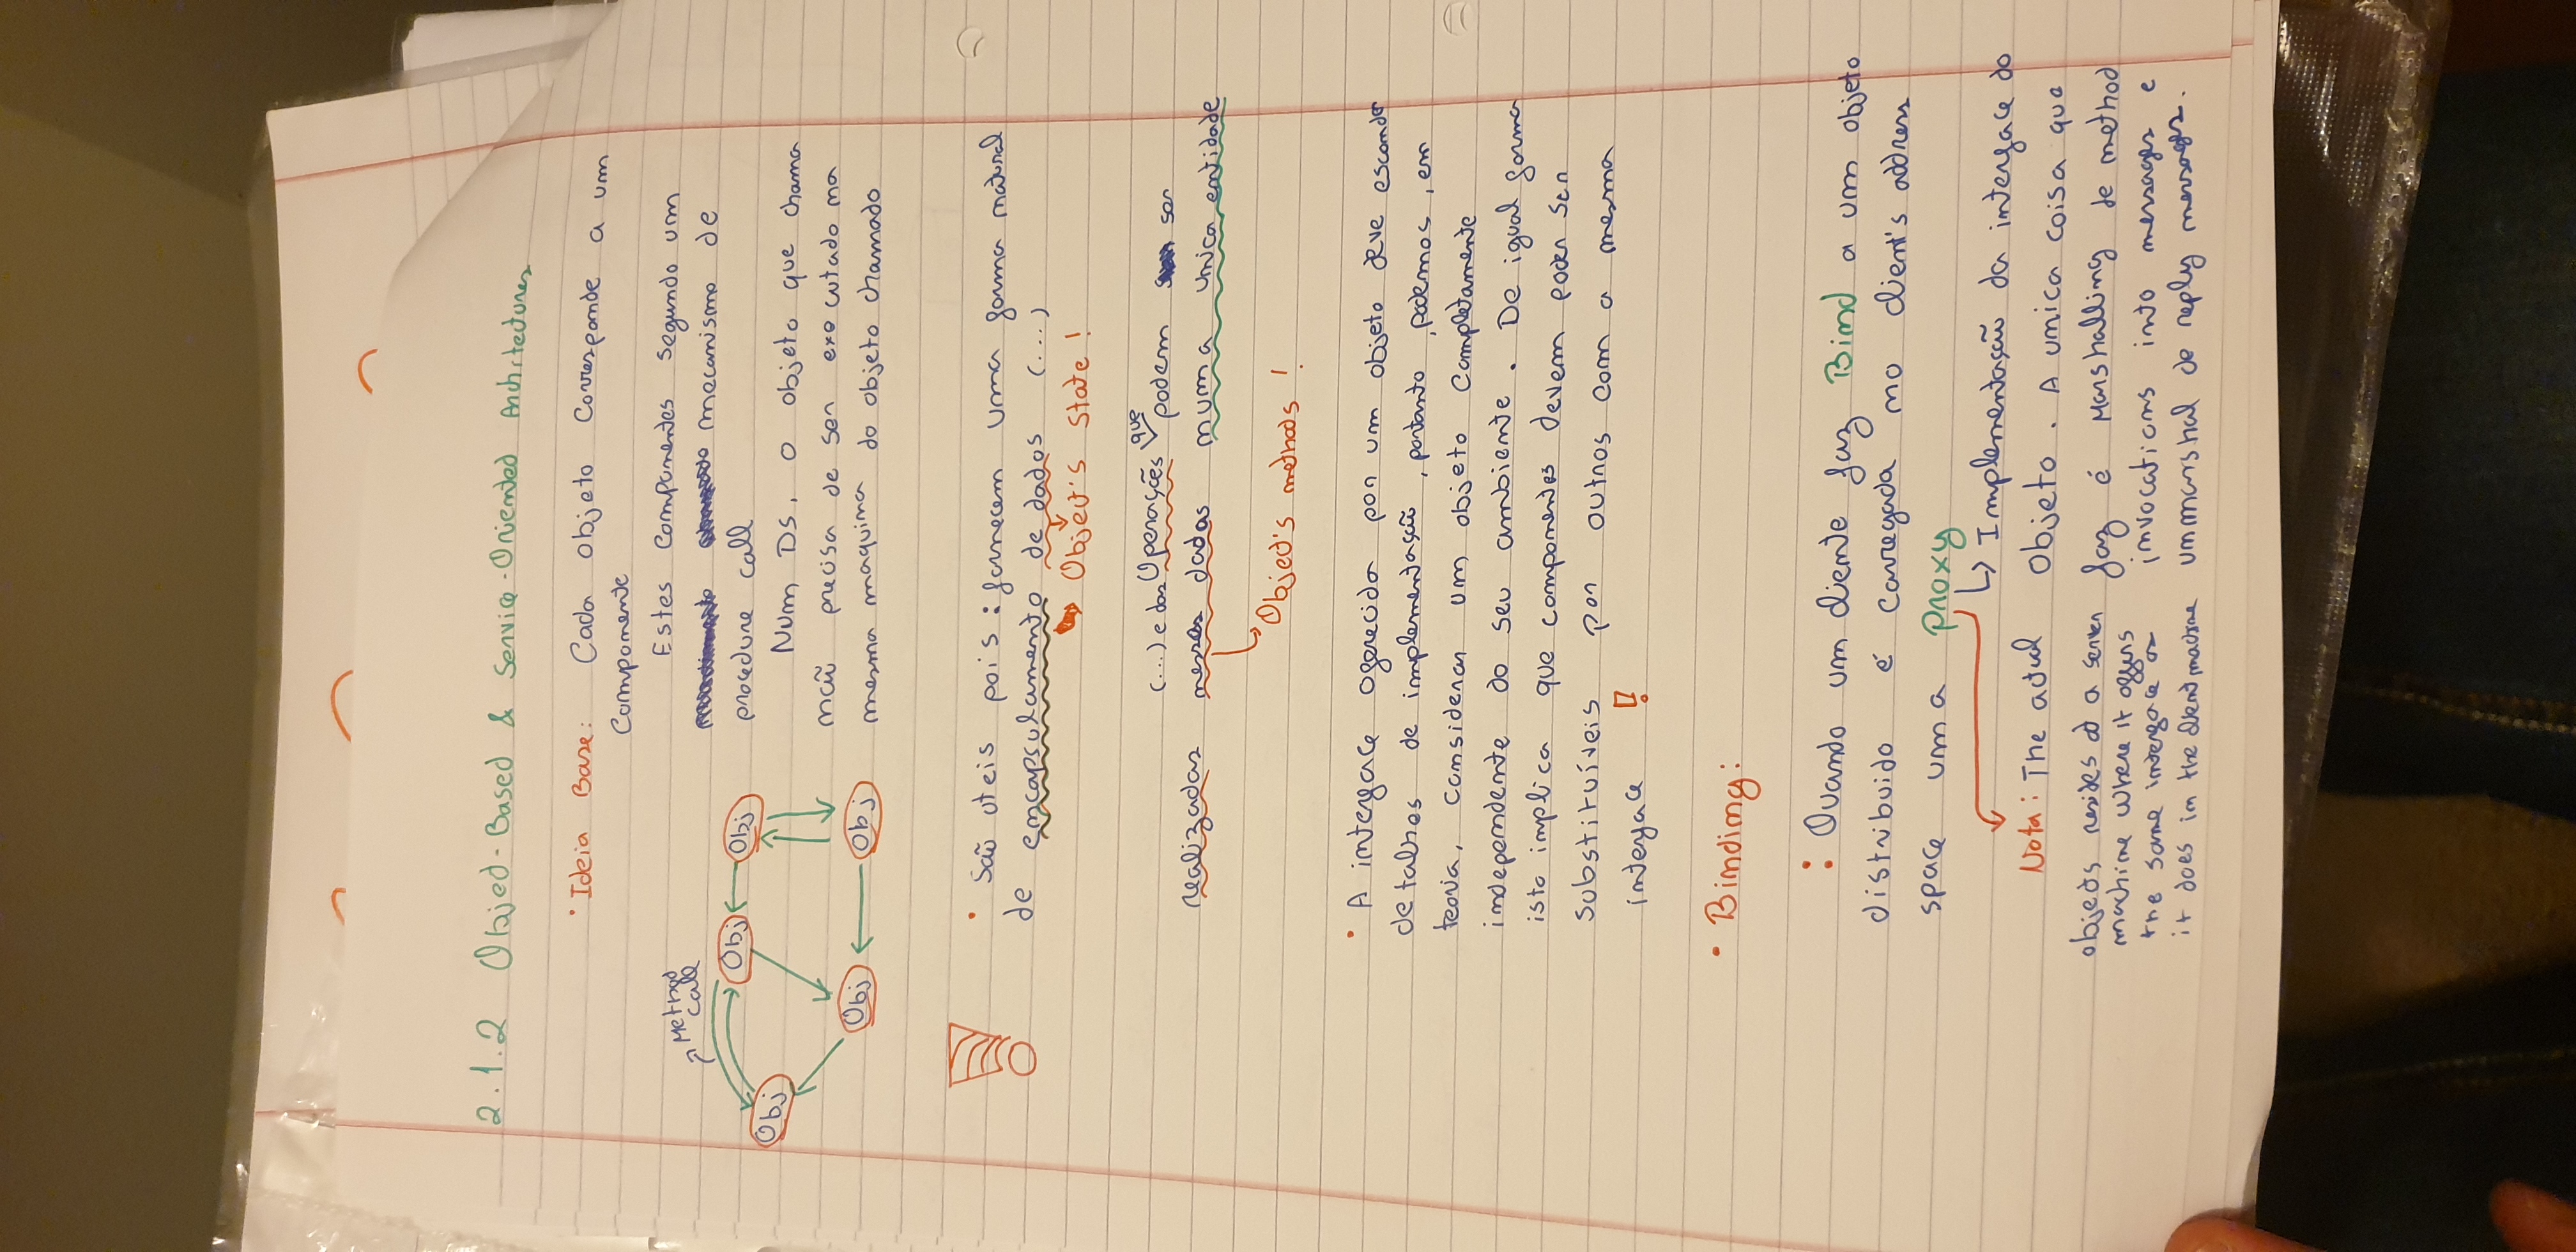 2.1.2 Object-Based & Service-Oriented Architectures
· Ideia Base: Cada objeto corresponde a um
componente
Estes componentes segundo um
mecanismo de
procedure call
Num DS, o objeto que chama
não precisa de ser executado na
mesma maquina do objeto chamado
Method
call
Obj
Obj
Obj
Obj
Obj
· São uteis pois: fornecem uma forma natural
de encapsulamento de dados (...)
Object's State!
(...) e das Operações que podem ser
realizadas nesses dados numa unica entidade
Object's methods!
· A interface oferecida por um objeto deve esconder
detalhes de implementação, portanto, podemos, em
teoria, considerar um objeto completamente
independente do seu ambiente. De igual forma
isto implica que componentes devem poder ser
substituíveis por outros com a mesma
interface !
· Binding:
: Quando um cliente faz Bind a um objeto
distribuido é carregada no client's address
space uma proxy
Implementação da interface do
objeto. A unica coisa que
faz é Marshalling de method
invocations into messages e
unmarshal de reply messages.
Nota: The actual
objects resides at a server
machine where it offers
the same interface as
it does in the client machine